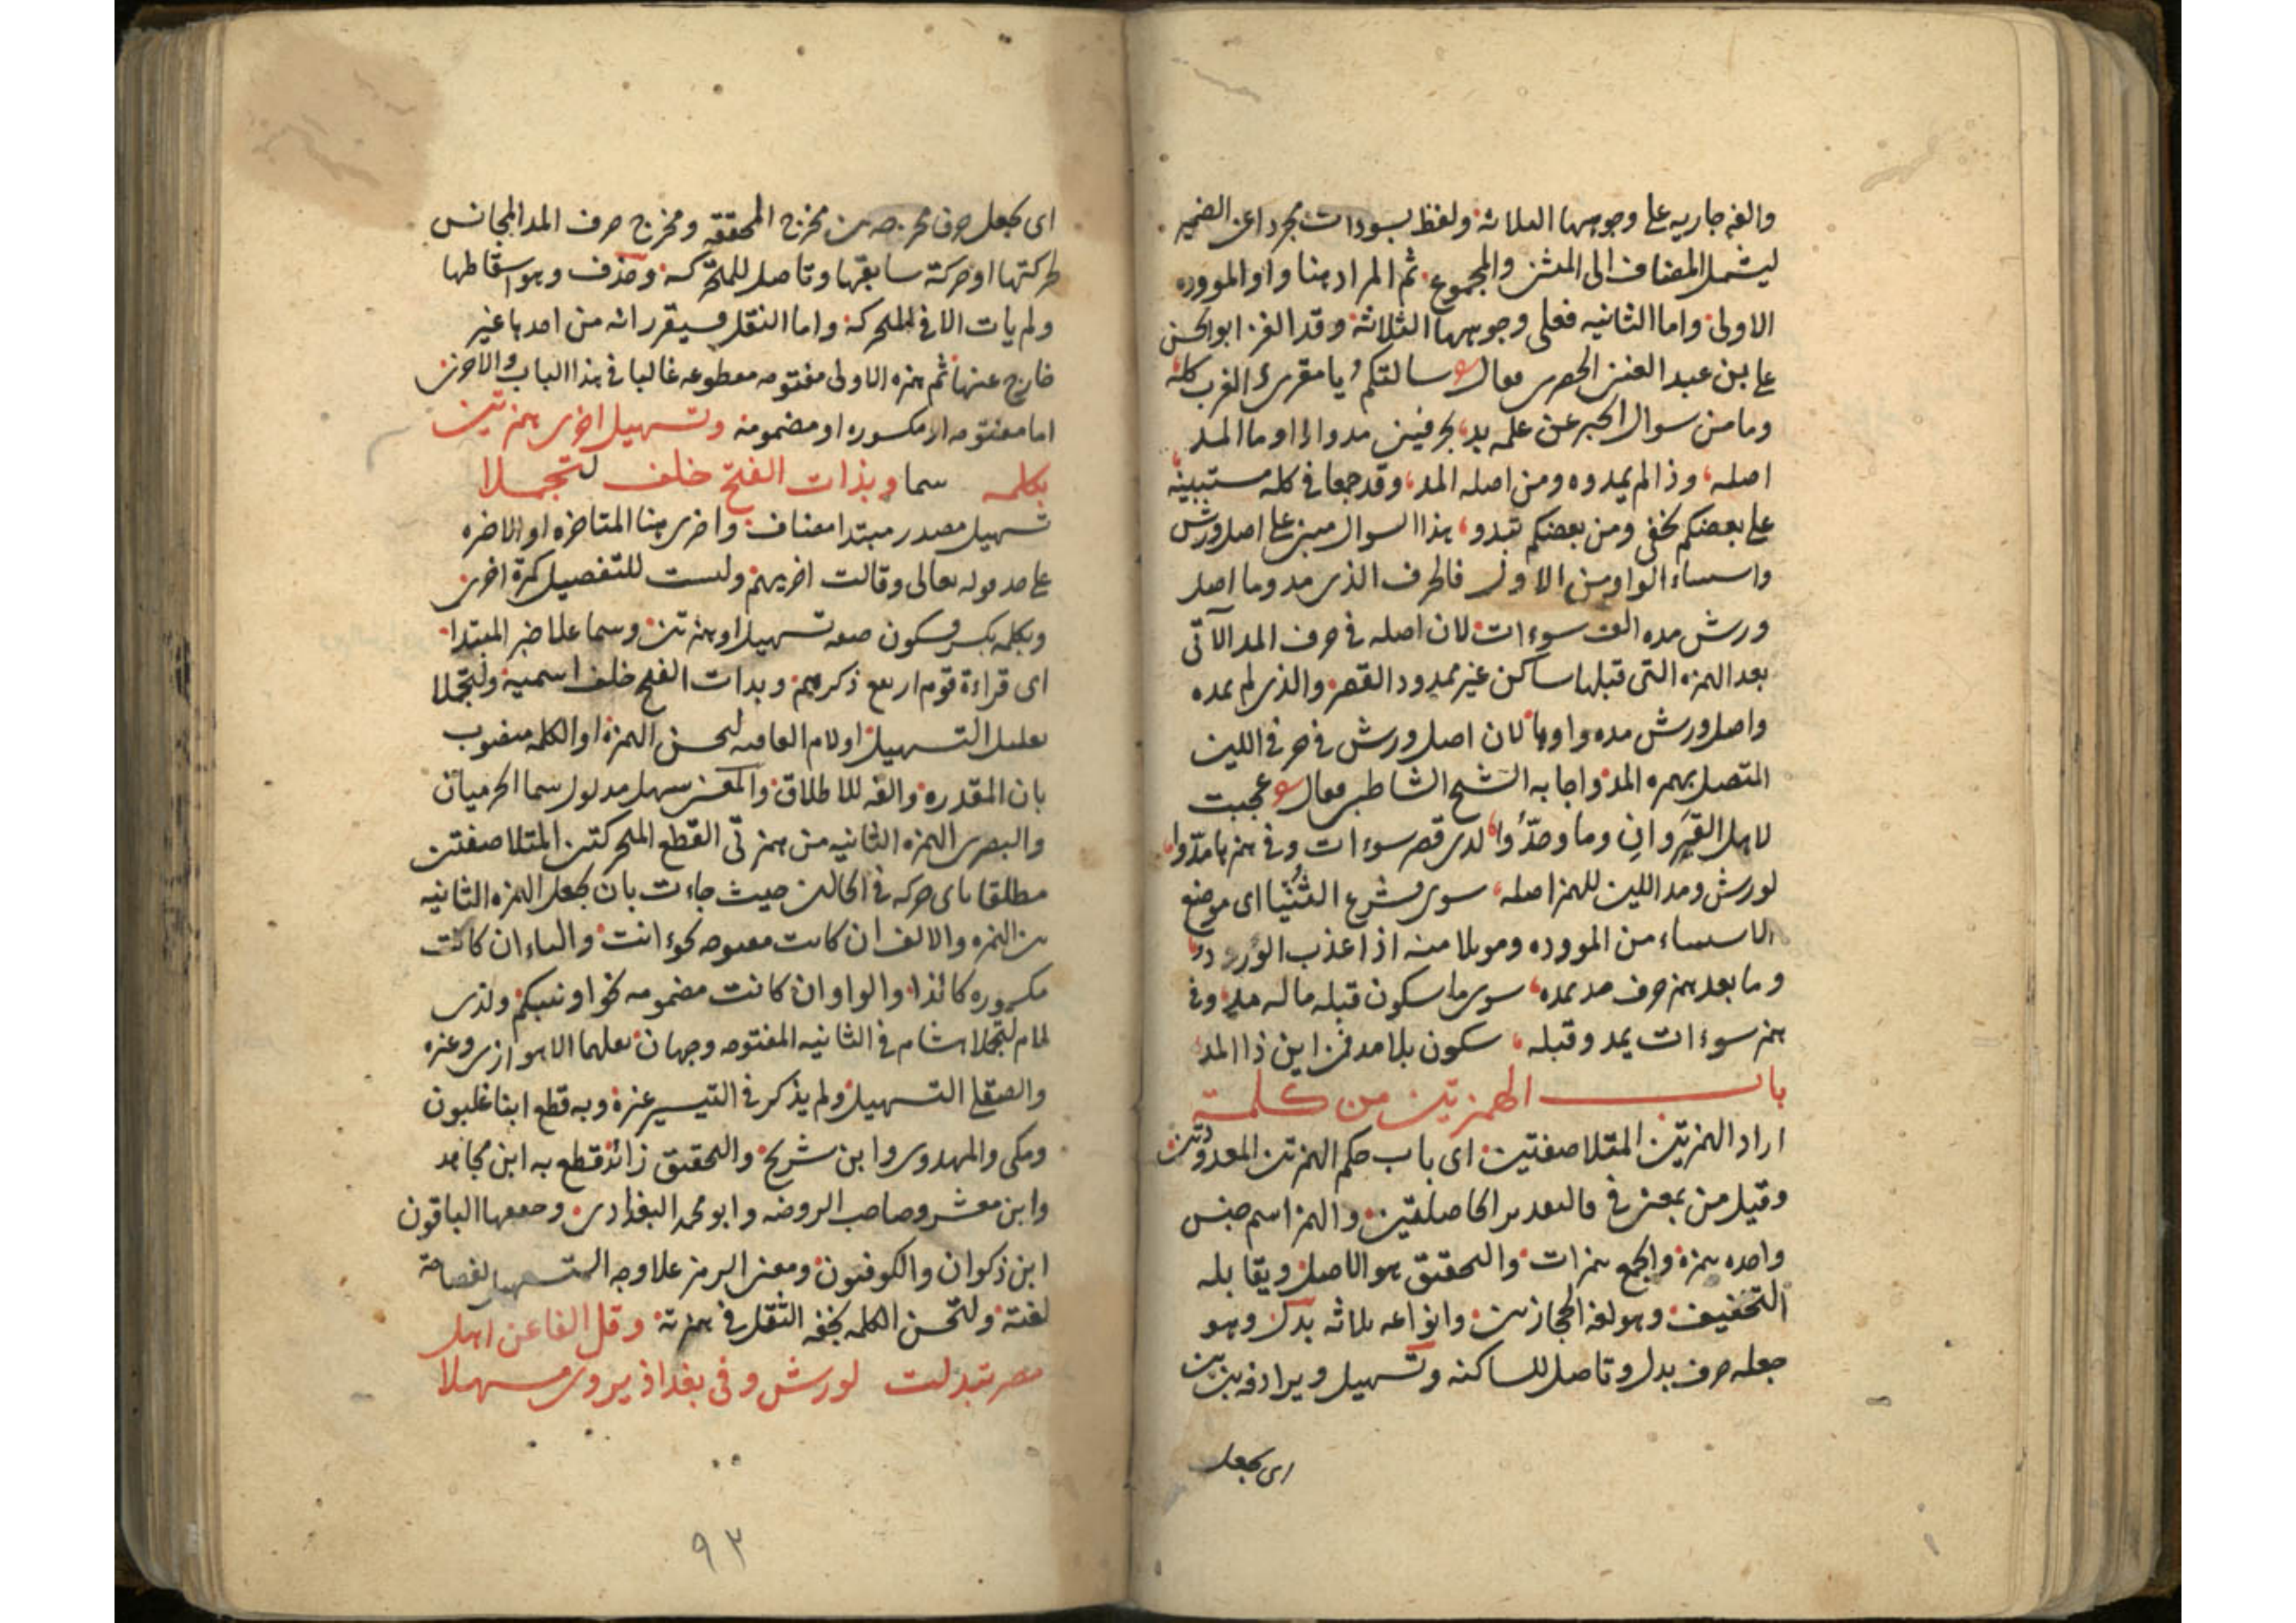 والفه جاريه على وجوهها الثلاثة ولفظ بسودات مجردا عن الضمير
ليشمل المضاف الى المثنى والمجموع ثم المراد هنا واو الموودة
الاولى واما الثانيه فعلى وجوهها الثلاثة وقد الغز ابو الحسن
علي بن عبد الغني الحصري فقال سالتكم يا مقرئ الغرب كله
وما من سوال الحبر عن علمه بد بحرفين مدوا ذا وما المد
اصله وذا لم يمدوه ومن اصله المد وقد جمعا في كلمه مستبينة
على بعضكم تخفى ومن بعضكم تبدو هذا السوال مبني على اصل ورش
واستثناء الواو من الاول فالحرف الذي مد وما اصل
ورش مده الف سوءات لان اصله في حرف المد الآتي
بعد الهمزه التي قبلها ساكن غير ممدود القصر والذي لم يمده
واصل ورش مده واوها لان اصل ورش في حرفي اللين
المتصل بهمزه المد واجابه الشيخ الشاطبي فقال عجبت
لاهل القيروان وما وجدوا لدى قصر سوءات وفي همزها مدوا
لورش ومد اللين للهمز اصله سوى مشرع الثنيا اى موضع
الاستثناء من الموودة وموئلا منه اذا عذب الورد
وما بعد همز حرف مد يمده سوى ما سكون قبله ما له مد وفي
همز سوءات يمد وقبله سكون بلا مد فمن اين ذا المد
باب الهمزتين من كلمة
اراد الهمزتين المتلاصقتين اى باب حكم الهمزتين المعدودتين
وقيل من بمعنى في فالتقدير الحاصلتين والهمز اسم جنس
واحده همزة والجمع همزات والتحقيق هو الاصل ويقابله
التخفيف وهو لغة الحجازيين وانواعه ثلاثه بدل وهو
جعله حرف بدل وتاصل للساكنه وتسهيل ويرادفه بين بين
اى يجعل
اى يجعل حرف مخرجه بين مخرج المحققه ومخرج حرف المد المجانس
لحركتها او حركة سابقها وتاصل للمتحركة وحذف وهو اسقاطها
ولم يات الا في المتحركة واما النقل فسيقرر انه من احدها غير
خارج عنها ثم همزه الاولى مفتوحه مقطوعه غالبا في هذا الباب والاخرى
اما مفتوحه او مكسوره او مضمومة وتسهيل اخرى همزتين
بكلمه سما وبذات الفتح خلف لتجملا
تسهيل مصدر مبتدا مضاف واخرى هنا المتاخره او الاخره
على حد قوله تعالى وقالت اخريهم وليست للتفضيل كمرة اخرى
وبكلمه بكسر وسكون صفه تسهيل او همزتين وسما علما خبر المبتدا
اى قراءة قوم اربع ذكرهم وبذات الفتح خلف اسمية ولتجملا
تعليل التسهيل او لام العاقبه لتحسن الهمزة او الكلمه منصوب
بان المقدره والفه للاطلاق والمعنى سهل مدلول سما الحرميان
والبصري الهمزه الثانيه من همزتي القطع المتحركتين المتلاصقتين
مطلقا باى حركه في الحالين حيث جاءت بان يجعل الهمزه الثانيه
بين الهمزه والالف ان كانت مفتوحه نحو ءانت والياء ان كانت
مكسوره كائذا والواو ان كانت مضمومه نحو اونبيكم ولذى
لام لتجملا هشام في الثانيه المفتوحه وجهان نقلهما الاهوازي وغيره
والصقلي التسهيل ولم يذكر في التيسير غيرة وبه قطع ابنا غلبون
ومكي والمهدوي وابن شريح والتحقيق زائد قطع به ابن مجاهد
وابن معشر وصاحب الروضه وابو محمد البغدادي وحققها الباقون
ابن ذكوان والكوفيون ومعنى الرمز علا وجه التسهيل لفصاحة
لغته ولتحسن الكلمه بخفه الثقل في همزته وقل الفا عن اهل
مصر تبدلت لورش وفي بغداذ يروى مسهلا
٩٣